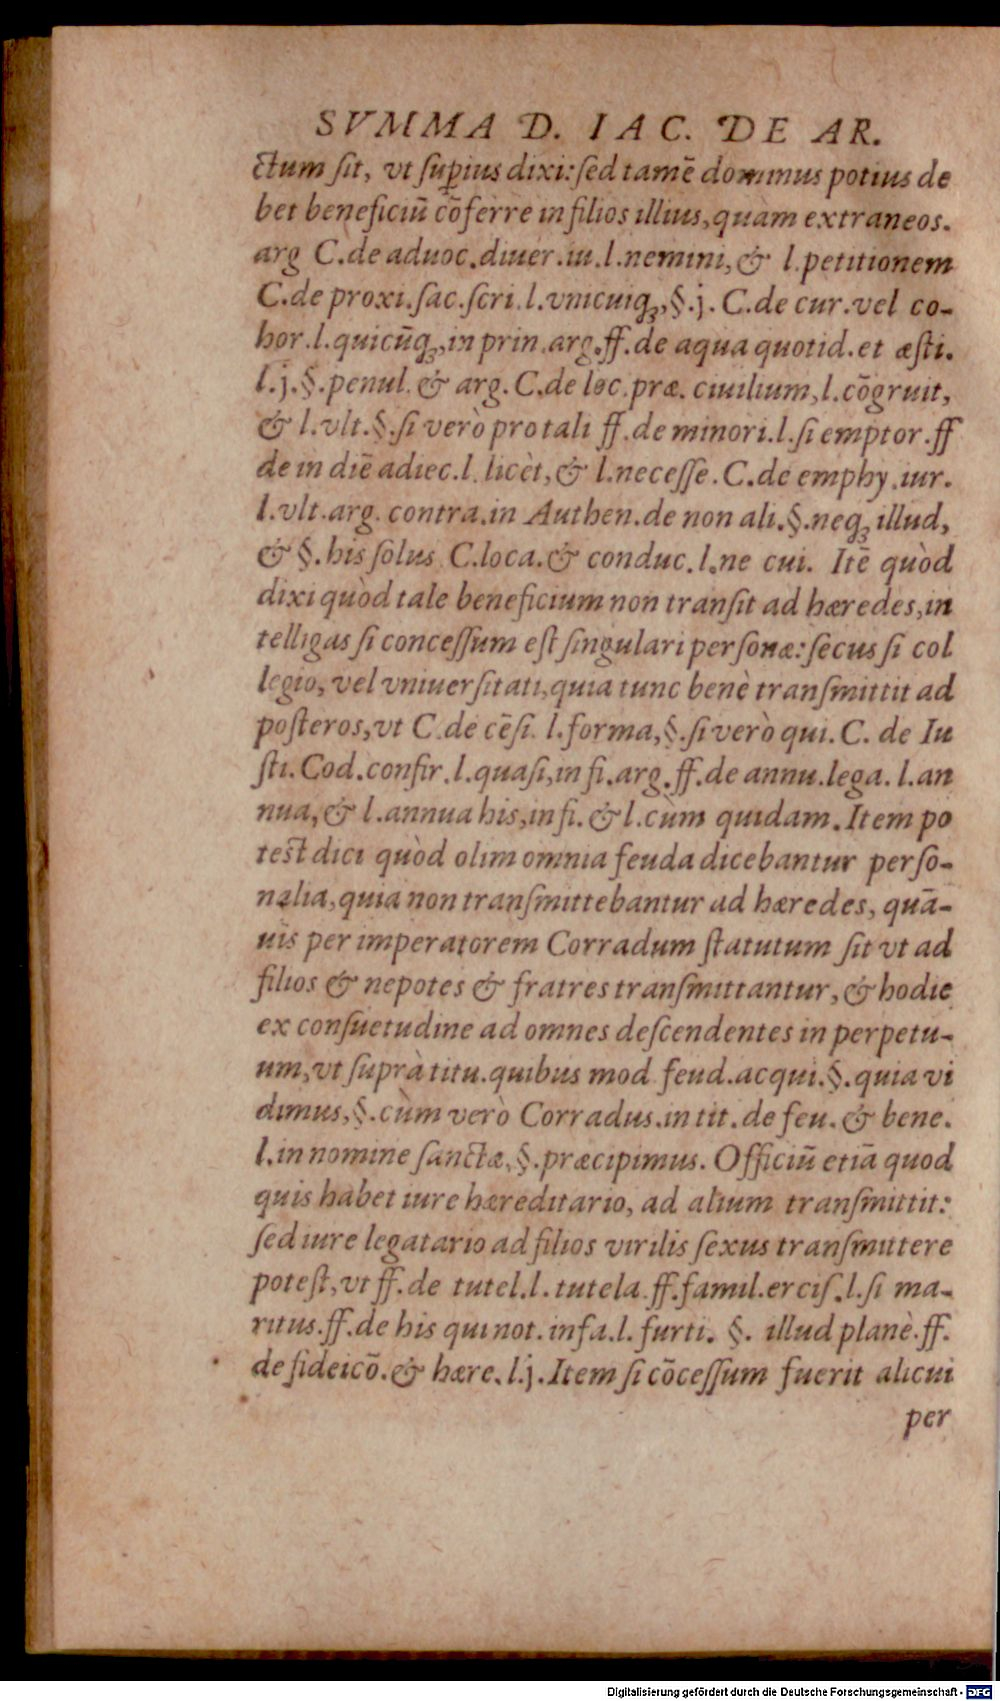 SVMMA D. IAC. DE AR.
ctum ſit, vt ſuꝑius dixi: ſed tamē dominus potius de
bet beneficiū cōferre in filios illius, quàm extraneos.
arg C. de aduoc. diuer. iu. l. nemini, & l. petitionem
C. de proxi. ſac. ſcri. l. vnicuiqꝫ, §. j. C. de cur. vel co-
hor. l. quicūqꝫ, in prin. arg. ff. de aqua quotid. et æſti.
l. j. §. penul. & arg. C. de loc. præ. ciuilium, l. cōgruit,
& l. vlt. §. ſi verò pro tali ff. de minori. l. ſi emptor. ff
de in diē adiec. l. licèt, & l. neceſſe. C. de emphy. iur.
l. vlt. arg. contra. in Authen. de non ali. §. neqꝫ illud,
& §. his ſolus C. loca. & conduc. l. ne cui. Itē quòd
dixi quòd tale beneficium non tranſit ad hæredes, in
telligas ſi conceſſum eſt ſingulari perſonæ: ſecus ſi col
legio, vel vniuerſitati, quia tunc benè tranſmittit ad
poſteros, vt C. de cēſi. l. forma, §. ſi verò qui. C. de Iu
ſti. Cod. confir. l. quaſi, in fi. arg. ff. de annu. lega. l. an
nua, & l. annua his, in fi. & l. cùm quidam. Item po
teſt dici quòd olim omnia feuda dicebantur perſo-
nalia, quia non tranſmittebantur ad hæredes, quā-
uis per imperatorem Corradum ſtatutum ſit vt ad
filios & nepotes & fratres tranſmittantur, & hodie
ex conſuetudine ad omnes deſcendentes in perpetu-
um, vt ſuprà titu. quibus mod feud. acqui. §. quia vi
dimus, §. cùm verò Corradus. in tit. de feu. & bene.
l. in nomine ſanctæ, §. præcipimus. Officiū etiā quod
quis habet iure hæreditario, ad alium tranſmittit:
ſed iure legatario ad filios virilis ſexus tranſmittere
poteſt, vt ff. de tutel. l. tutela ff. famil. erciſ. l. ſi ma-
ritus. ff. de his qui not. infa. l. furti. §. illud planè. ff.
de fideicō. & hære. l. j. Item ſi cōceſſum fuerit alicui
per
Digitalisierung gefördert durch die Deutsche Forschungsgemeinschaft - DFG